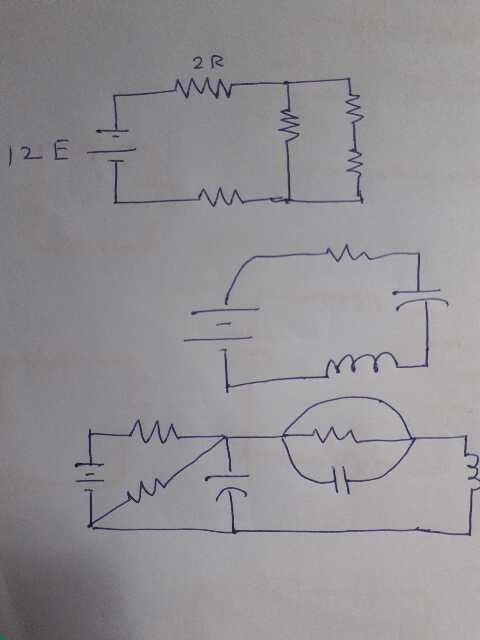 2R
12 E